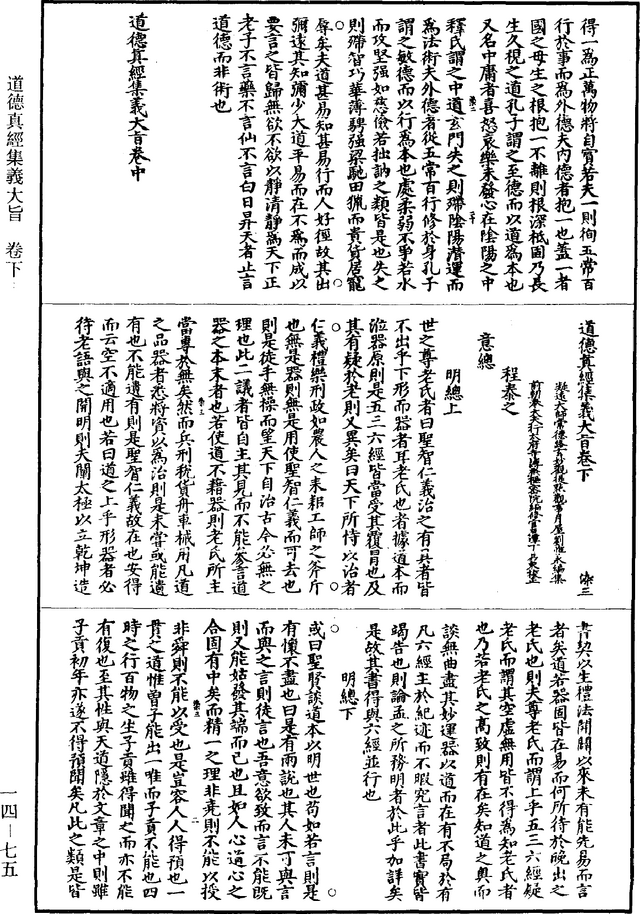 得一為正萬物將自賓若夫一則徇五常百
行於事而為外德夫內德者抱一也蓋一者
國之母生之根抱一不離則根深柢固乃長
生久視之道孔子謂之至德而以道為本也
又名中庸者喜怒哀樂未發心在陰陽之中
釋氏謂之中道玄門失之則殢陰陽潛運而
為法術夫外德者從五常百行修於身孔子
謂之敏德而以行為本也處柔弱不爭若水
而攻堅強如慈儉若拙訥之類皆是也失之
則殢智巧華薄騁強梁馳田獵而貴貨居寵
辱矣夫道甚易知甚易行而人好徑故其出
彌遠其知彌少大道平易而在不為而成以
要言之皆歸無欲不欲以靜清靜為天下正
老子不言藥不言仙不言白日昇天者止言
道德而非術也
道德真經集義大旨卷中
道德真經集義大旨卷下
染三
凝遠大師常德路玄妙觀提點觀事劉惟永編集
前朝奉大夫太府寺簿兼樞密院編修官丁易東校正
程泰之
意總
明總上
世之尊老氏者曰聖智仁義治之有具者皆
不出乎下形而器者耳老氏也者據道本而
涖器原則是五三六經皆當受其覆冒也及
其有疑於老則又異矣曰天下所恃以治者
仁義禮樂刑政如農人之耒耜工師之斧斤
也無是器則無是用使聖智仁義而可去也
則是徒手無操而望天下自治古今必無之
理也此二議者皆自主其見而不能參言道
器之本末者也若使道不藉器則老氏所主
當專於無矣然而兵刑稅貨舟車械用凡道
之品器者悉將資以為治則是未嘗或能遺
有也不能遺有則是聖智仁義故在也安得
而云空不適用也若曰道之上乎形器者必
待老語與之開明則夫闡太極以立乾坤造
書契以生禮法開闢以來未有能先易而言
者矣道若器固皆在易而何所待於晚出之
老氏也則夫尊老氏而謂上乎五三六經疑
老氏而謂其空虛無用皆不得為知老氏者
也乃若老氏之高致則有在矣知道之輿而
談無曲盡其妙運器以道而在有不局於有
凡六經主於紀迹而不暇究言者此書實皆
竭告也則論孟之所務明者於此乎加詳矣
是故其書得與六經並行也
明總下
或曰聖賢談道本以明世也苟如若言則是
有懷不盡也曰是有兩說也其人未可與言
而與之言則徒言也吾意欲致而言不能既
則又能姑發其端而已也且如人心道心之
合固有中矣而精一之理非堯則不能以授
非舜則不能以受也是豈容人人得預也一
貫之道惟曾子能出一唯而子貢不能也四
時之行百物之生子貢雖得聞之而亦不能
有復也至其性與天道隱於文章之中則雖
子貢初年亦遂不得預聞矣凡此之類是皆
道德真經集義大旨 卷下
一四—七五